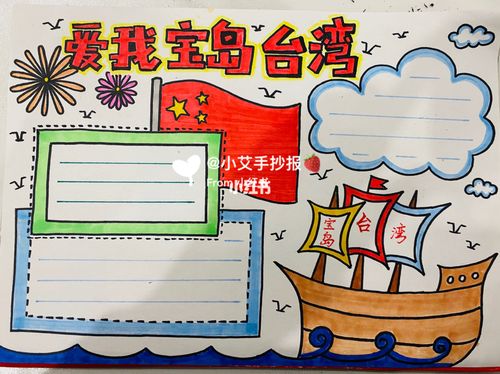 爱我宝岛台湾
@小艾手抄报
From 小红书
小红书
宝岛
台
湾